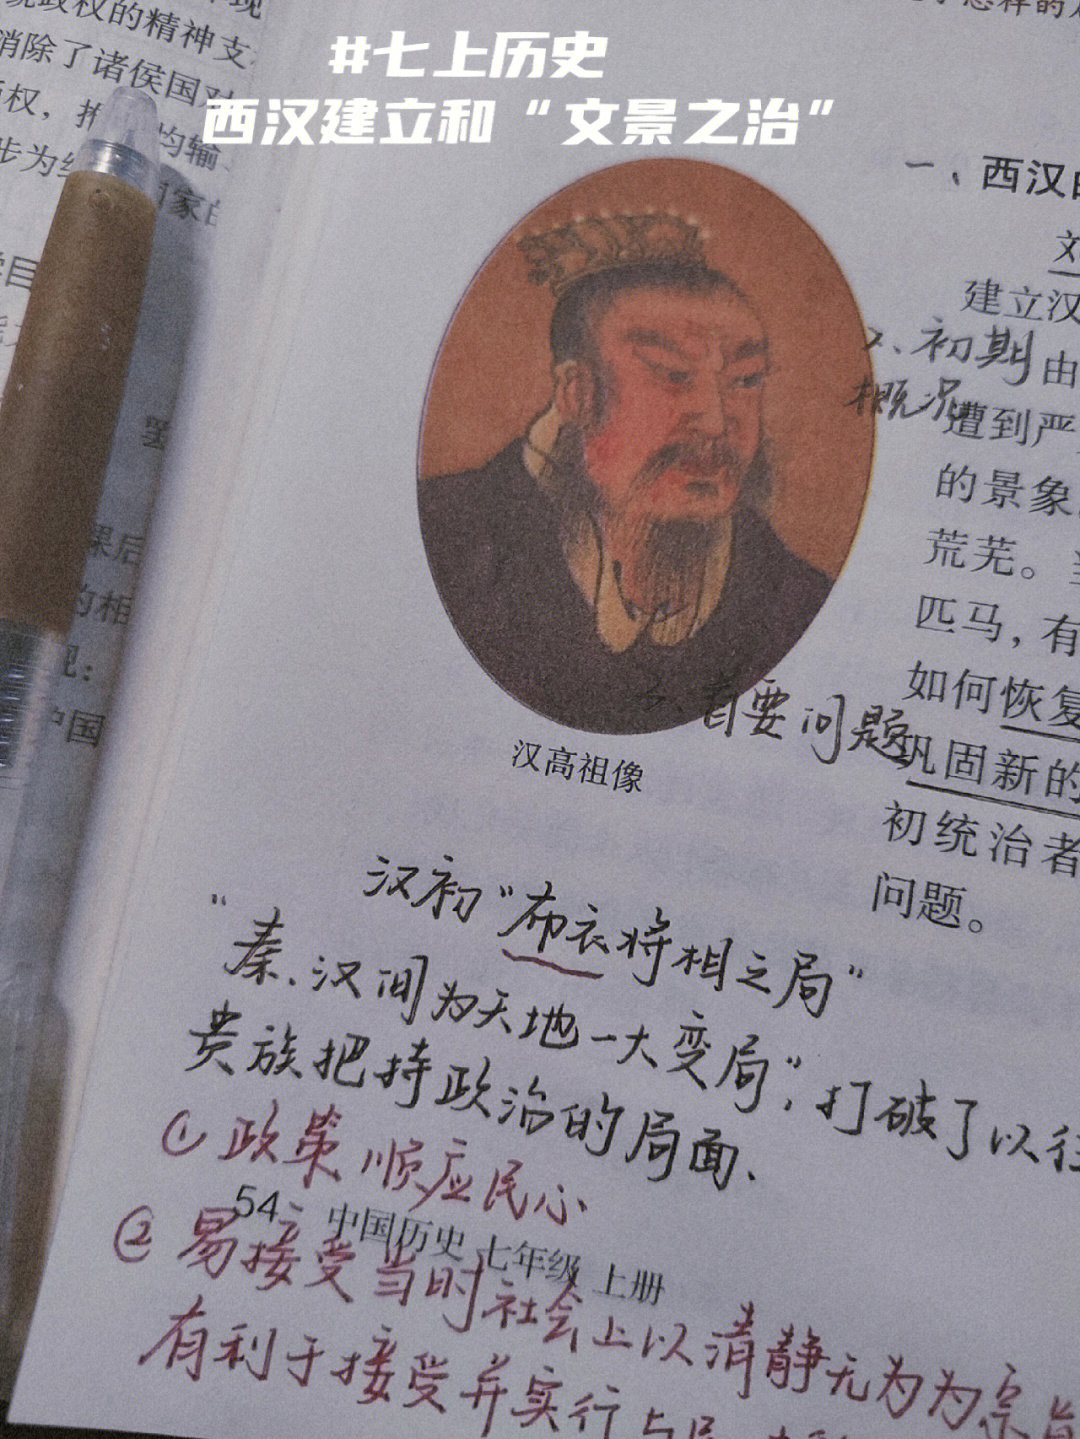 #七上历史
西汉建立和“文景之治”
政权的精神支
消除了诸侯国对
权，推
均输、
步为
国家的
课后
的相
现：
中国
一、西汉
刘
建立汉
2、初期
概况
由
遭到严
的景象
荒芜。
匹马，有
如何恢复
三、首要问题
巩固新的
初统治者
问题。
汉高祖像
汉初“布衣将相之局”
“秦、汉间为天地一大变局”，打破了以往
贵族把持政治的局面、
① 政策顺应民心
54 中国历史 七年级 上册
② 易接受当时社会上以清静无为为宗旨
有利于接受并实行与民